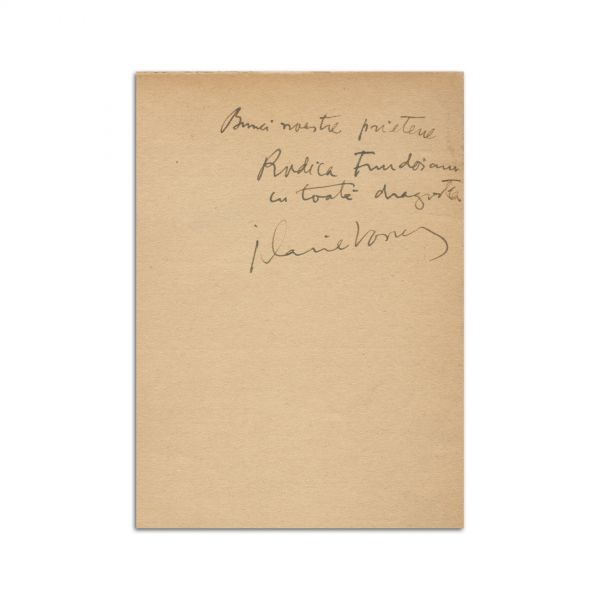 Bunei noastre prietene
Rodica Fundoianu
cu toată dragostea
ilarie Voronca